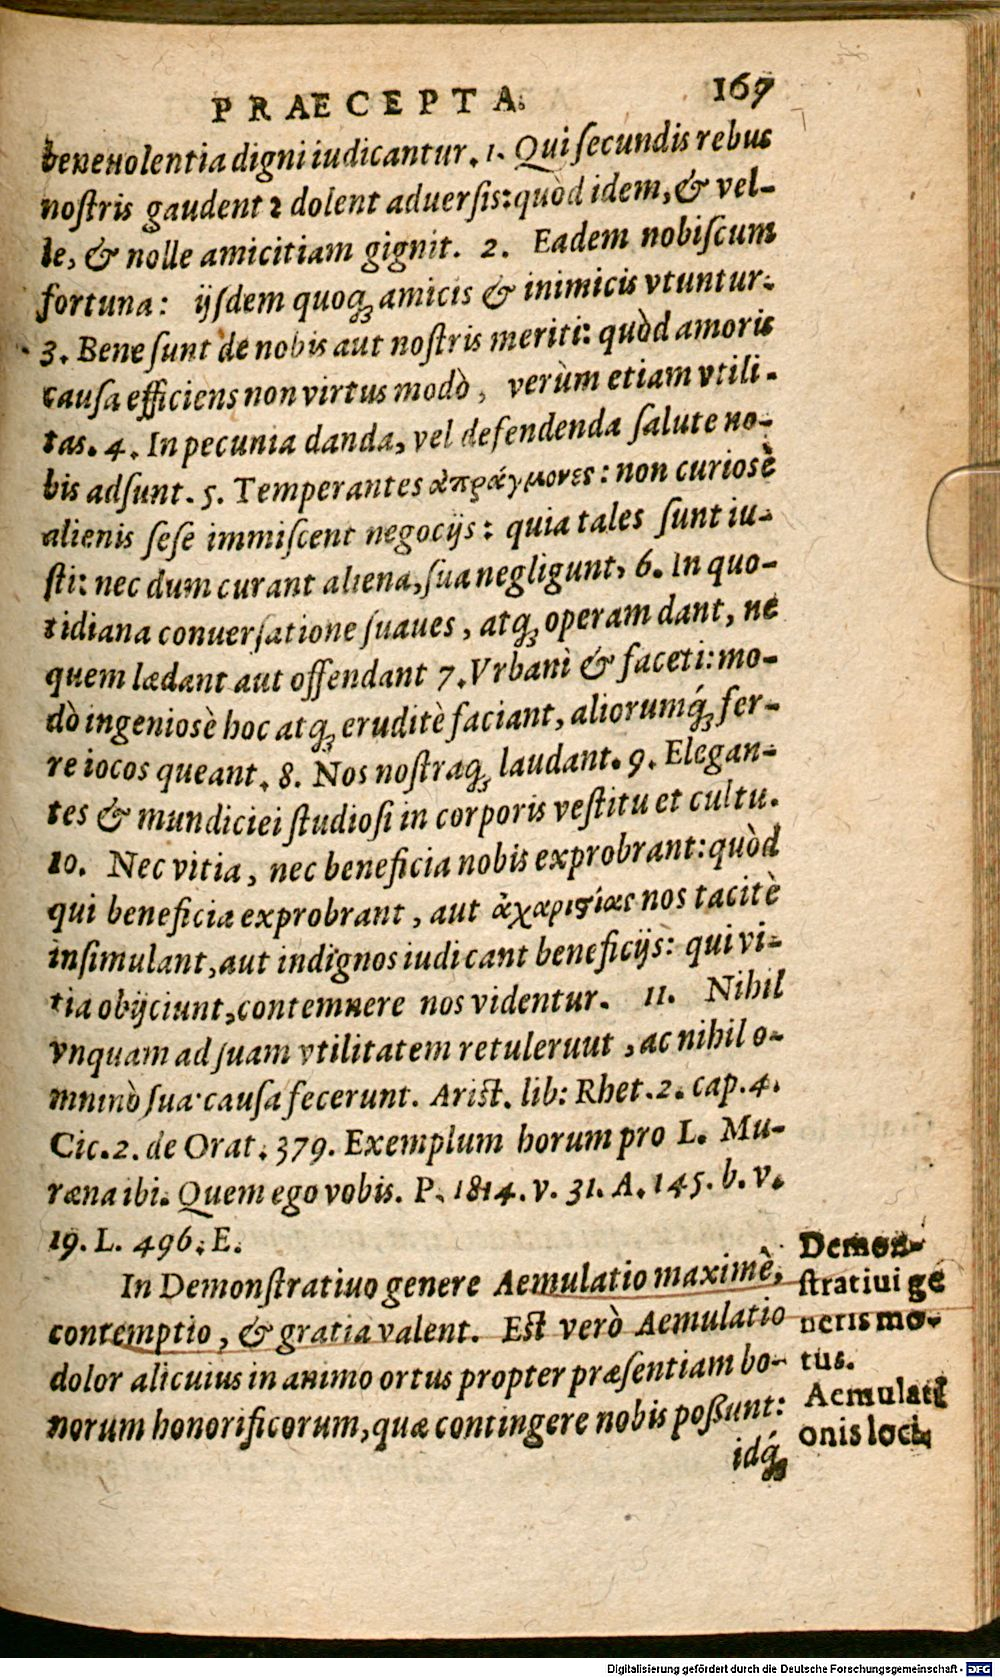 PRAECEPTA. 167
beneuolentia digni iudicantur. 1. Qui ſecundis rebus
noſtris gaudent 2 dolent aduerſis: quòd idem, & vel-
le, & nolle amicitiam gignit. 2. Eadem nobiſcum
fortuna: ijſdem quoqꝫ amicis & inimicis vtuntur.
3. Bene ſunt de nobis aut noſtris meriti: quòd amoris
cauſa efficiens non virtus modò, verùm etiam vtili-
tas. 4. In pecunia danda, vel defendenda ſalute no-
bis adſunt. 5. Temperantes ἀπράγμονες: non curioſè
alienis ſeſe immiſcent negocijs: quia tales ſunt iu-
ſti: nec dum curant aliena, ſua negligunt, 6. In quo-
tidiana conuerſatione ſuaues, atqꝫ operam dant, ne
quem lædant aut offendant 7. Vrbani & faceti: mo-
dò ingenioſè hoc atqꝫ eruditè faciant, aliorumq́ꝫ fer-
re iocos queant. 8. Nos noſtraqꝫ laudant. 9. Elegan-
tes & mundiciei ſtudioſi in corporis veſtitu et cultu.
10. Nec vitia, nec beneficia nobis exprobrant: quòd
qui beneficia exprobrant, aut ἀχαριστίας nos tacitè
inſimulant, aut indignos iudicant beneficijs: qui vi-
tia obijciunt, contemnere nos videntur. 11. Nihil
vnquam ad ſuam vtilitatem retuleruut, ac nihil o-
mninò ſua cauſa fecerunt. Ariſt. lib: Rhet. 2. cap. 4.
Cic. 2. de Orat. 379. Exemplum horum pro L. Mu-
ræna ibi. Quem ego vobis. P. 1814. v. 31. A. 145. b. v.
19. L. 496. E.
In Demonſtratiuo genere Aemulatio maximè,
contemptio, & gratia valent. Eſt verò Aemulatio
dolor alicuius in animo ortus propter præſentiam bo-
norum honorificorum, quæ contingere nobis poſſunt:
idq́ꝫ
Demon-
ſtratiui ge
neris mo-
tus.
Aemulati
onis loci.
Digitalisierung gefördert durch die Deutsche Forschungsgemeinschaft - DFG